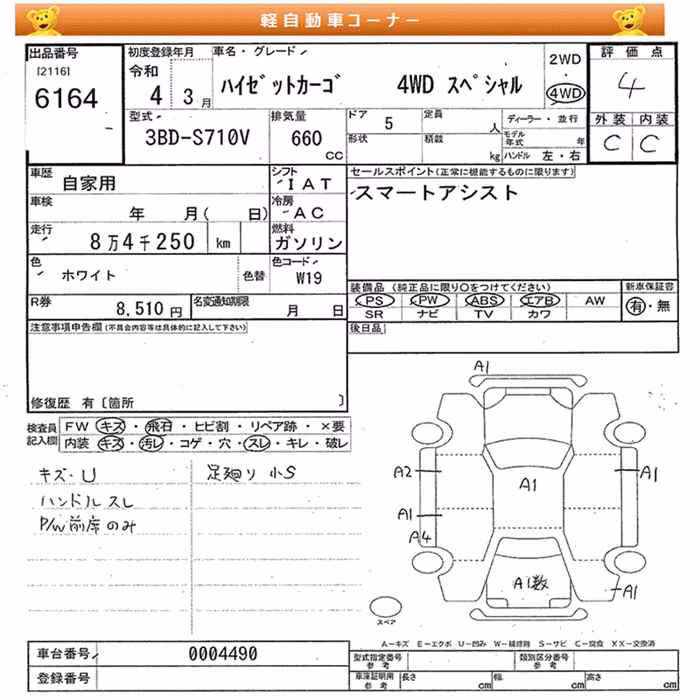 軽自動車コーナー
出品番号
[2116]
6164
初度登録年月
令和
4 3月
車名・グレード
ハイゼットカーゴ 4WD スペシャル
2WD
・
4WD
評価点
4
外装 内装
C C
型式
3BD-S710V
排気量
660
CC
ドア 5
形状
定員 人
積載 kg
ディーラー・並行
モデル年式 年
ハンドル 左・右
車歴 自家用
シフト
IAT
車検 年 月( 日)
冷房
AC
走行 8万4千250 km
燃料
ガソリン
色 ホワイト
色替
色コード
W19
R券 8,510円
名変通知期限 月 日
セールスポイント(正常に機能するものに限ります)
スマートアシスト
装備品(純正品に限り○をつけてください)
新車保証書
PS PW ABS エアB AW
SR ナビ TV カワ
有・無
後日品
注意事項申告欄(不具合内容等は具体的に記入して下さい)
修復歴 有〔箇所 〕
検査員記入欄
FW キズ・飛石・ヒビ割・リペア跡・×要
内装 キズ・汚レ・コゲ・穴・スレ・キレ・破レ
キズ・U
ハンドルスレ
P/W前席のみ
足廻り小S
A1
A2
A1
A1
A1
A4
A1数
A1
スペア
A-キズ E-エクボ U-凹み W-補修跡 S-サビ C-腐食 XX-交換済
車台番号 0004490
登録番号
型式指定番号
参考
類別区分番号
参考
車庫証明用
参考
長さ cm
幅 cm
高さ cm